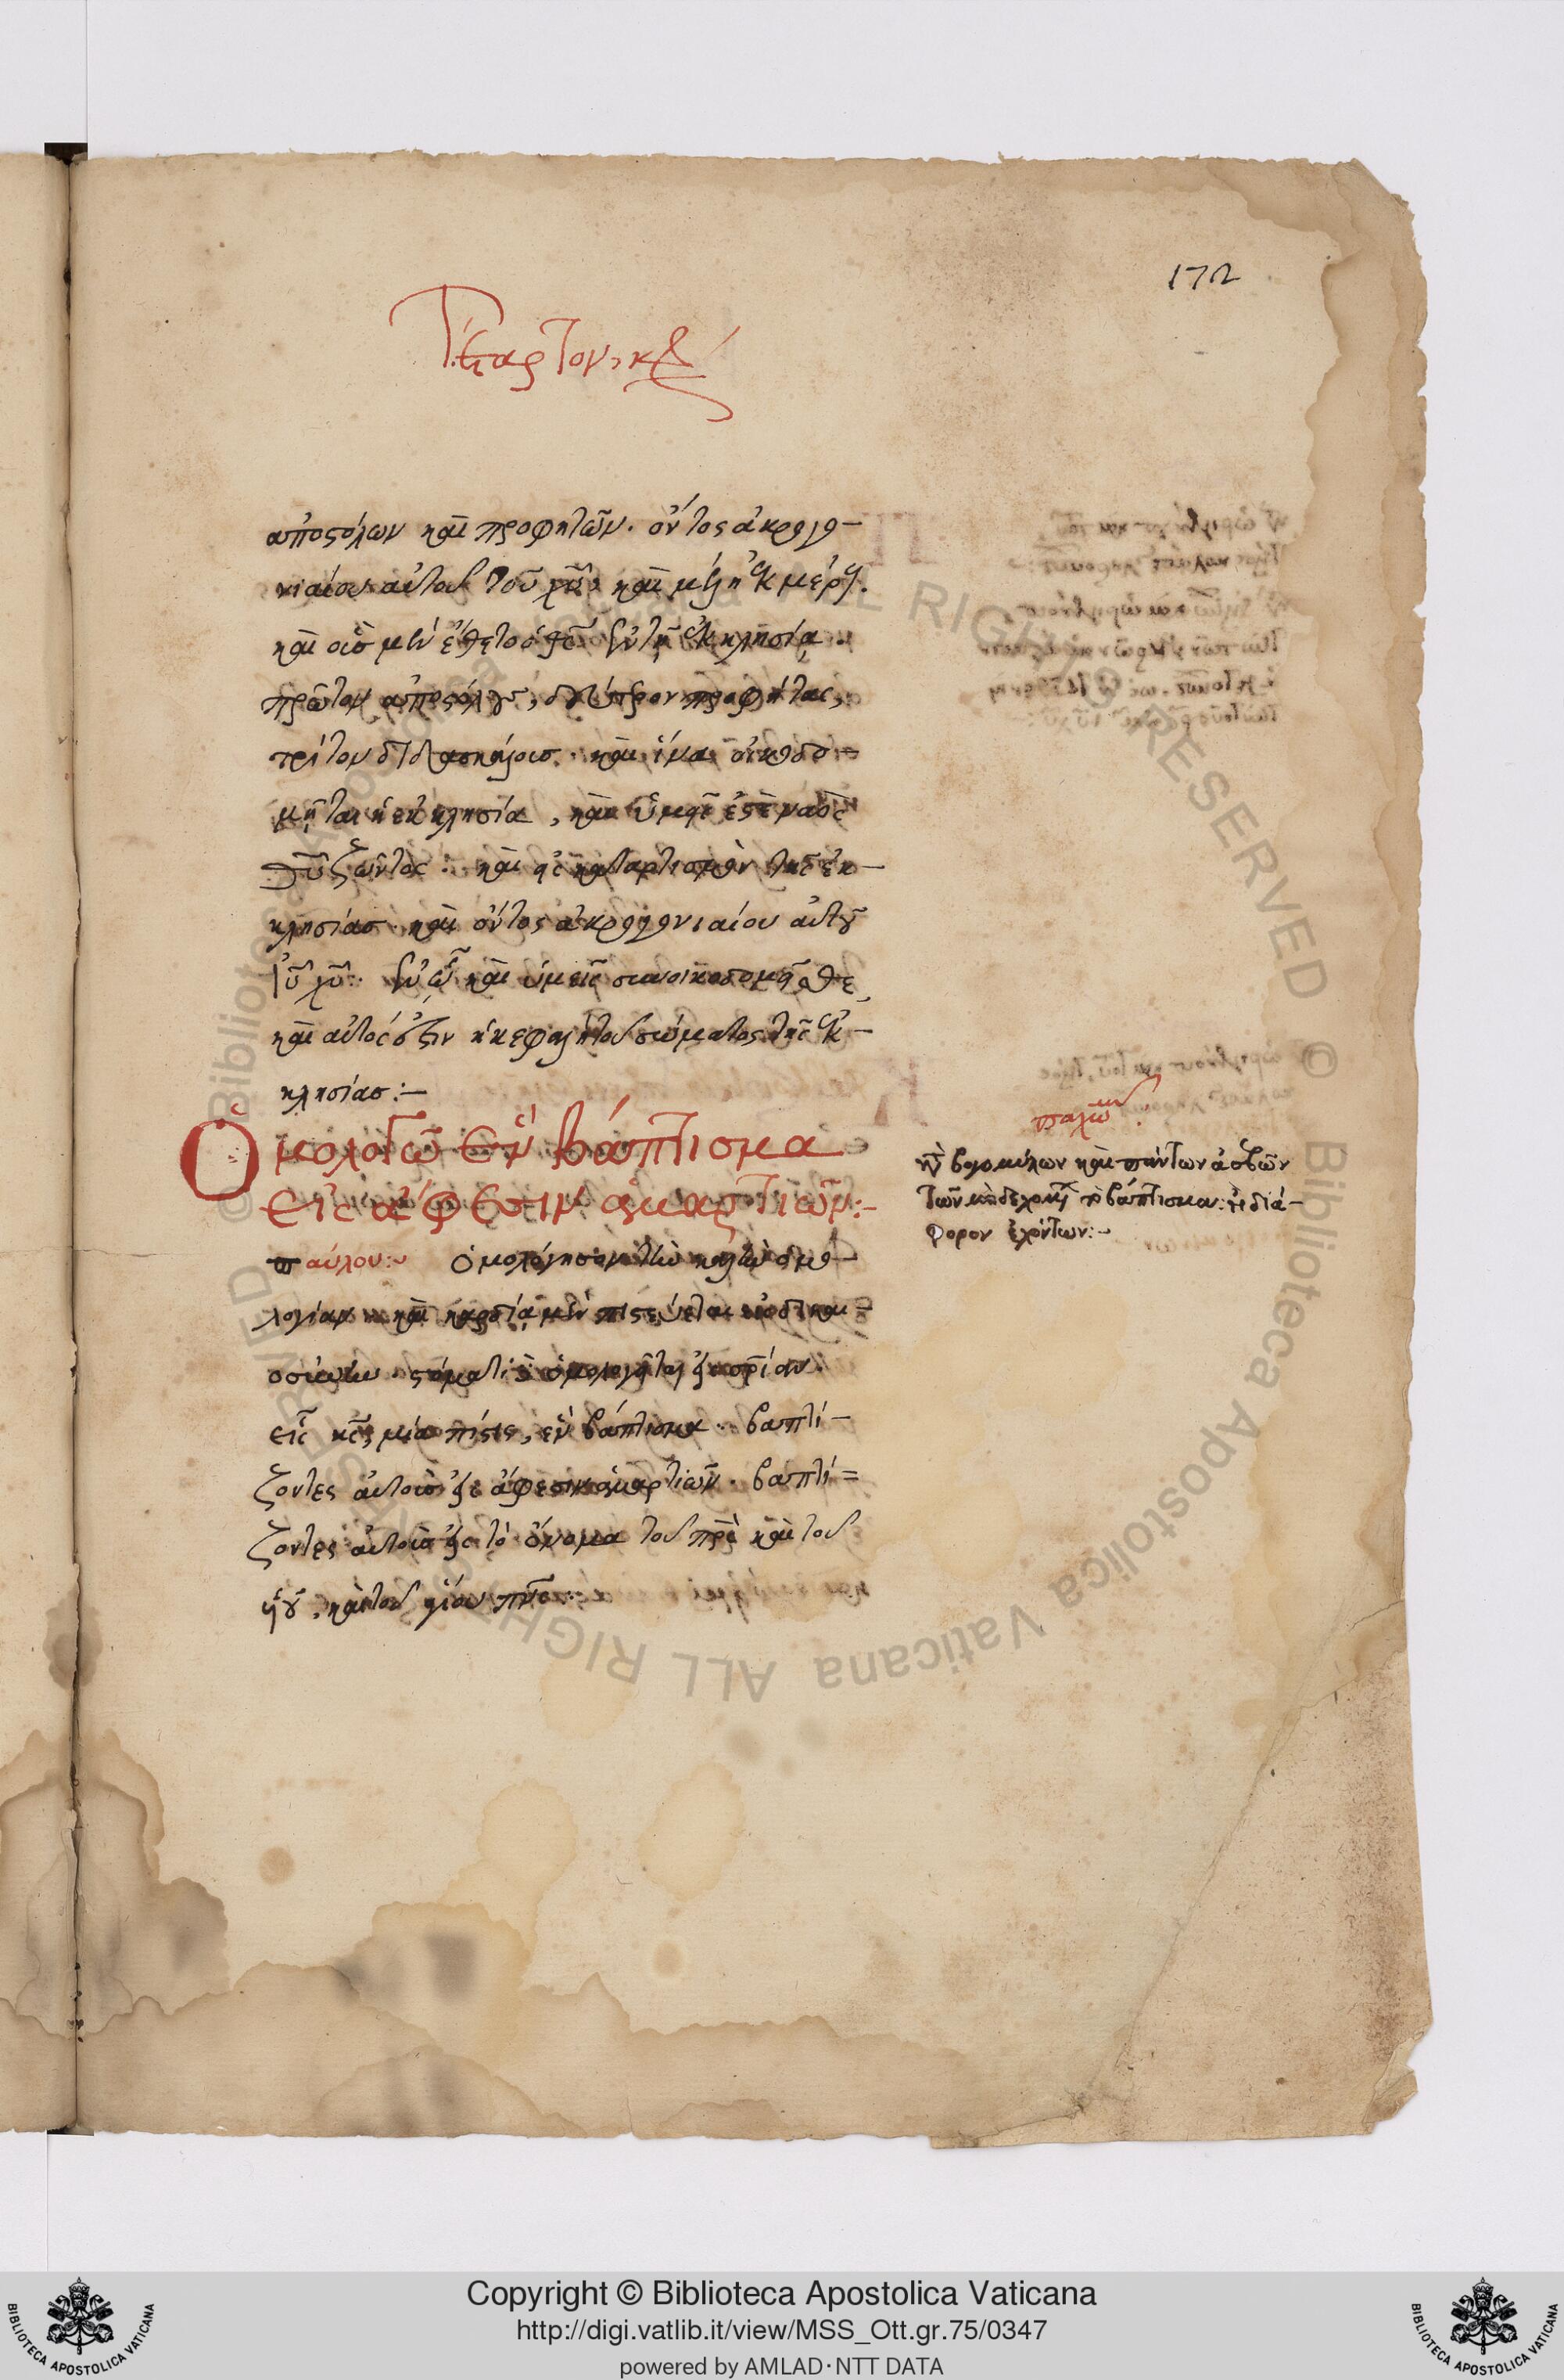 172
ἀποστόλων καὶ προφητῶν. ὄντος ἀκρογω-
νιαίου αὐτοῦ τοῦ χυ̅. καὶ μέλη ἐκ μέρους.
καὶ οὓς μὲν ἔθετο ὁ θς̅ ἐν τῇ ἐκκλησίᾳ.
πρῶτον ἀποστόλους, δεύτερον προφήτας,
τρίτον διδασκάλους. καὶ ἵνα οἰκοδο-
μῆται ἡ ἐκκλησία, καὶ ὑμεῖς ἐστὲ ναὸς
θυ̅ ζῶντος. καὶ εἰς καταρτισμὸν τῆς ἐκ-
κλησίας. καὶ ὄντος ἀκρογωνιαίου αὐτοῦ
ιυ̅ χυ̅. ἐν ᾧ καὶ ὑμεῖς συνοικοδομεῖσθε,
καὶ αὐτός ἐστιν ἡ κεφαλὴ τοῦ σώματος τῆς ἐκ-
κλησίας:-
Ὁμολογῶ ἓν βάπτισμα
εἰς ἄφεσιν ἁμαρτιῶν:-
παύλου:~ ὁμολόγησον τὴν καλὴν ὁμο-
λογίαν. καὶ καρδίᾳ μὲν πιστεύεται εἰς δικαι-
οσύνην. στόματι δὲ ὁμολογεῖται εἰς σρι̅αν.
εἷς κς̅, μία πίστις, ἓν βάπτισμα. βαπτί-
ζοντες αὐτοὺς εἰς ἄφεσιν ἁμαρτιῶν. βαπτί=
ζοντες αὐτοὺς εἰς τὸ ὄνομα τοῦ πρς̅ καὶ τοῦ
υἱοῦ, καὶ τοῦ ἁγίου πνς̅:
βογομίλων καὶ πάντων
τῶν μὴ δεχομένων τὸ βάπτισμα: ἢ διά-
φορον ἐχόντων:~
Copyright © Biblioteca Apostolica Vaticana
http://digi.vatlib.it/view/MSS_Ott.gr.75/0347
powered by AMLAD·NTT DATA
BIBLIOTECA APOSTOLICA VATICANA
BIBLIOTECA APOSTOLICA VATICANA
© Biblioteca Apostolica Vaticana ALL RIGHTS RESERVED